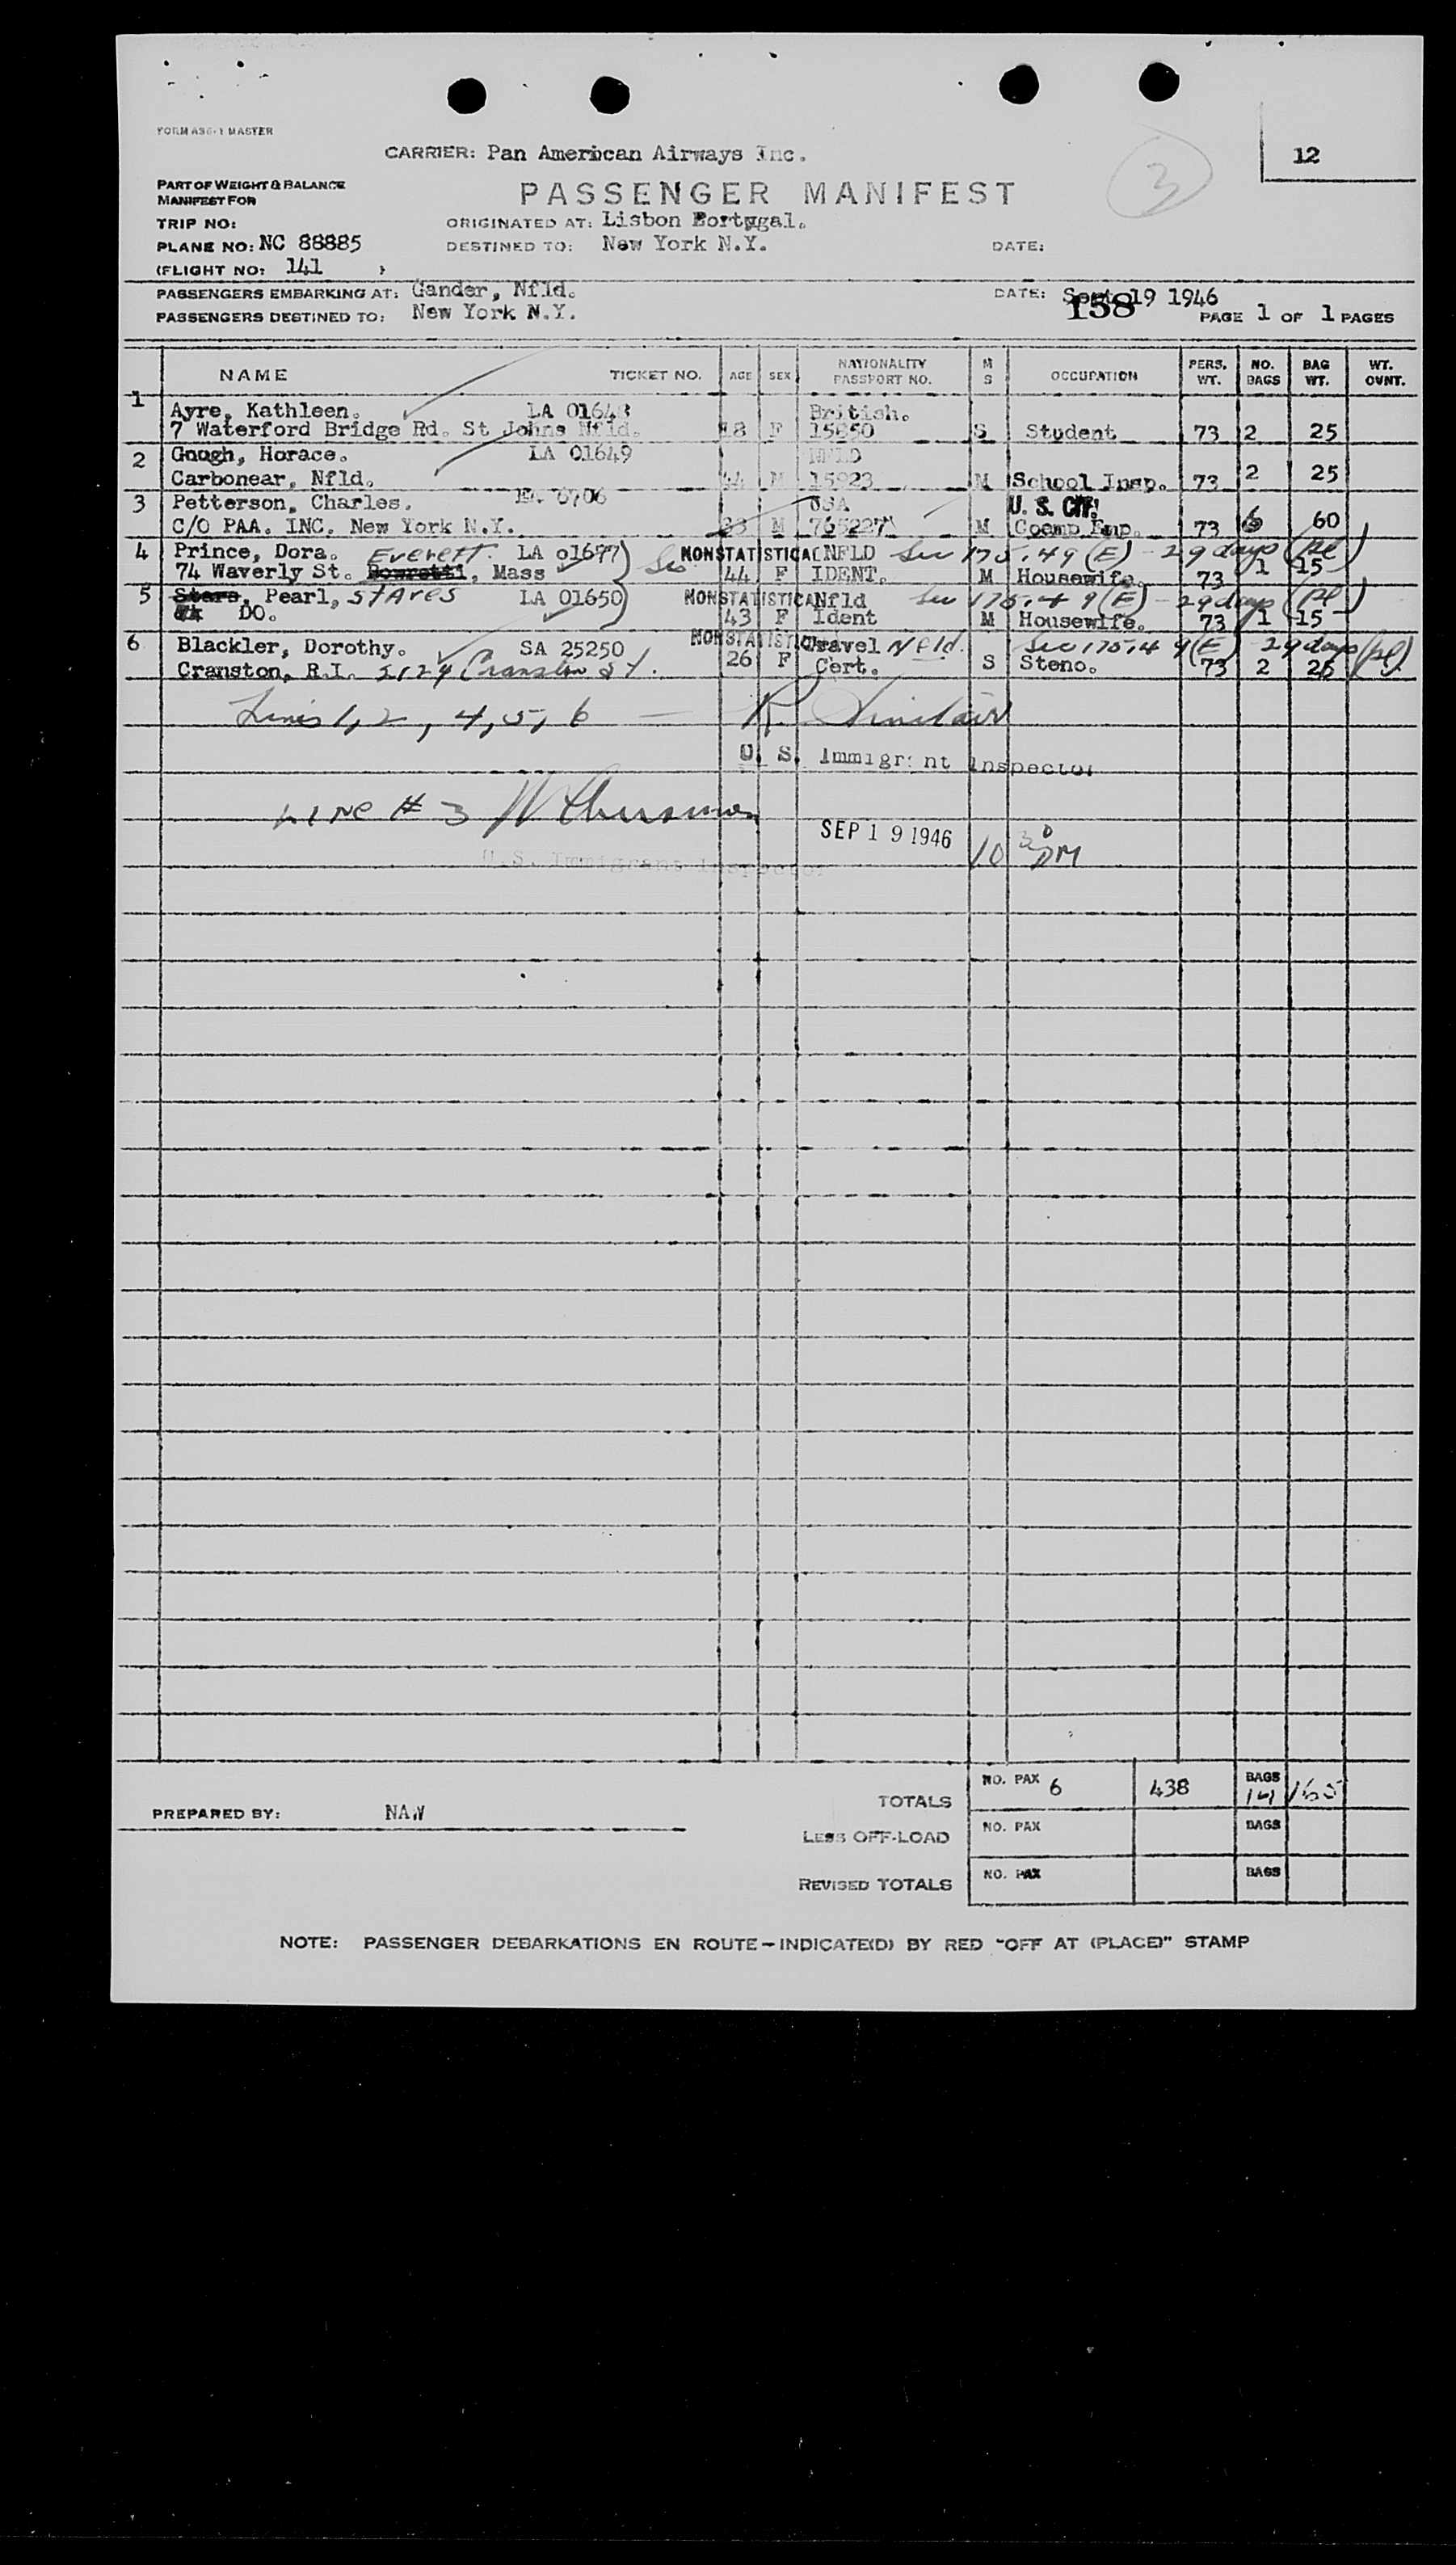 FORM ASG-1 MASTER
CARRIER: Pan American Airways Inc.
12
3
PART OF WEIGHT & BALANCE
MANIFEST FOR
PASSENGER MANIFEST
TRIP NO:
ORIGINATED AT: Lisbon Portugal.
PLANE NO: NC 88885
DESTINED TO: New York N.Y.
DATE:
(FLIGHT NO: 141 )
PASSENGERS EMBARKING AT: Gander, Nfld.
DATE: Sept 19 1946
PASSENGERS DESTINED TO: New York N.Y.
158
PAGE 1 OF 1 PAGES
NAME TICKET NO. AGE SEX NATIONALITY PASSPORT NO. M S OCCUPATION PERS. WT. NO. BAGS BAG WT. WT. OVNT.
1 Ayre, Kathleen. LA 01648 British.
7 Waterford Bridge Rd. St Johns Nfld. 18 F 15850 S Student 73 2 25
2 Gough, Horace. LA 01649 NFLD
Carbonear, Nfld. 44 M 15923 M School Insp. 73 2 25
3 Petterson, Charles. 6706 USA U. S. CIT.
C/O PAA. INC. New York N.Y. M 765227 M Emp. 73 6 60
4 Prince, Dora. Everett. LA 01677) NONSTATISTICAL NFLD Sec 175.49 (E) - 29 days (pl)
74 Waverly St. , Mass 44 F IDENT. M Housewife. 73 1 15
5 Stars, Pearl, Stares LA 01650) NONSTATISTICAL Nfld Sec 175.49 (E) - 29 days (pl)
DO. 43 F Ident M Housewife. 73 1 15
6 Blackler, Dorothy. SA 25250 NONSTATISTICAL Travel Nfld. Sec 175.49 (E) 29 days (pl)
Cranston, R.I. Cranston St. 26 F Cert. S Steno. 73 2 25
Lines 1, 2, 4, 5, 6 — R. Sinclair
U. S. Immigrant Inspector
LINE # 3
SEP 19 1946 10 30 PM
U.S. Immigrant Inspector
NO. PAX 6 438 BAGS 14 165
TOTALS
PREPARED BY: NAW
NO. PAX BAGS
LESS OFF-LOAD
NO. PAX BAGS
REVISED TOTALS
NOTE: PASSENGER DEBARKATIONS EN ROUTE - INDICATE(D) BY RED "OFF AT (PLACE)" STAMP